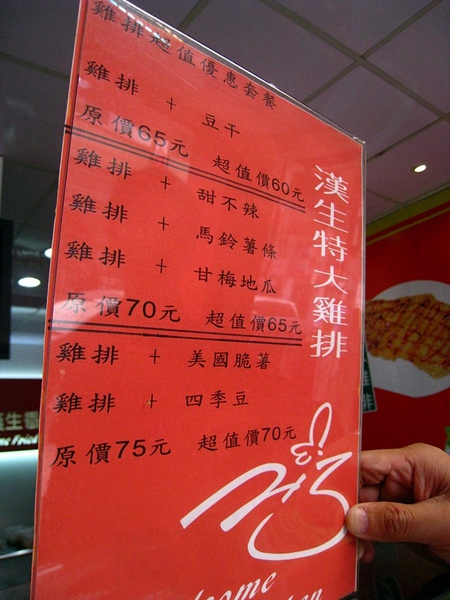 雞排超值優惠套餐
雞排 + 豆干
原價65元 超值價60元
雞排 + 甜不辣
雞排 + 馬鈴薯條
雞排 + 甘梅地瓜
原價70元 超值價65元
雞排 + 美國脆薯
雞排 + 四季豆
原價75元 超值價70元
漢生特大雞排